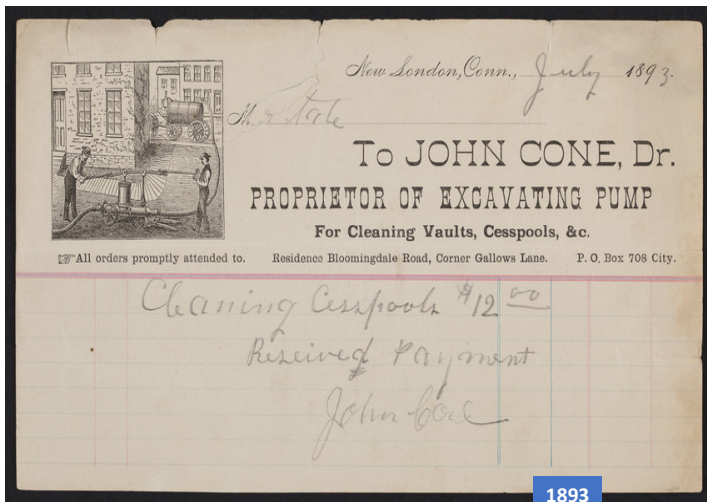 New London, Conn., July 1893.
Mr Tate
To JOHN CONE, Dr.
PROPRIETOR OF EXCAVATING PUMP
For Cleaning Vaults, Cesspools, &c.
☞All orders promptly attended to. Residence Bloomingdale Road, Corner Gallows Lane. P. O. Box 708 City.
Cleaning Cesspools $12 00
Received Payment
John Cone
1893